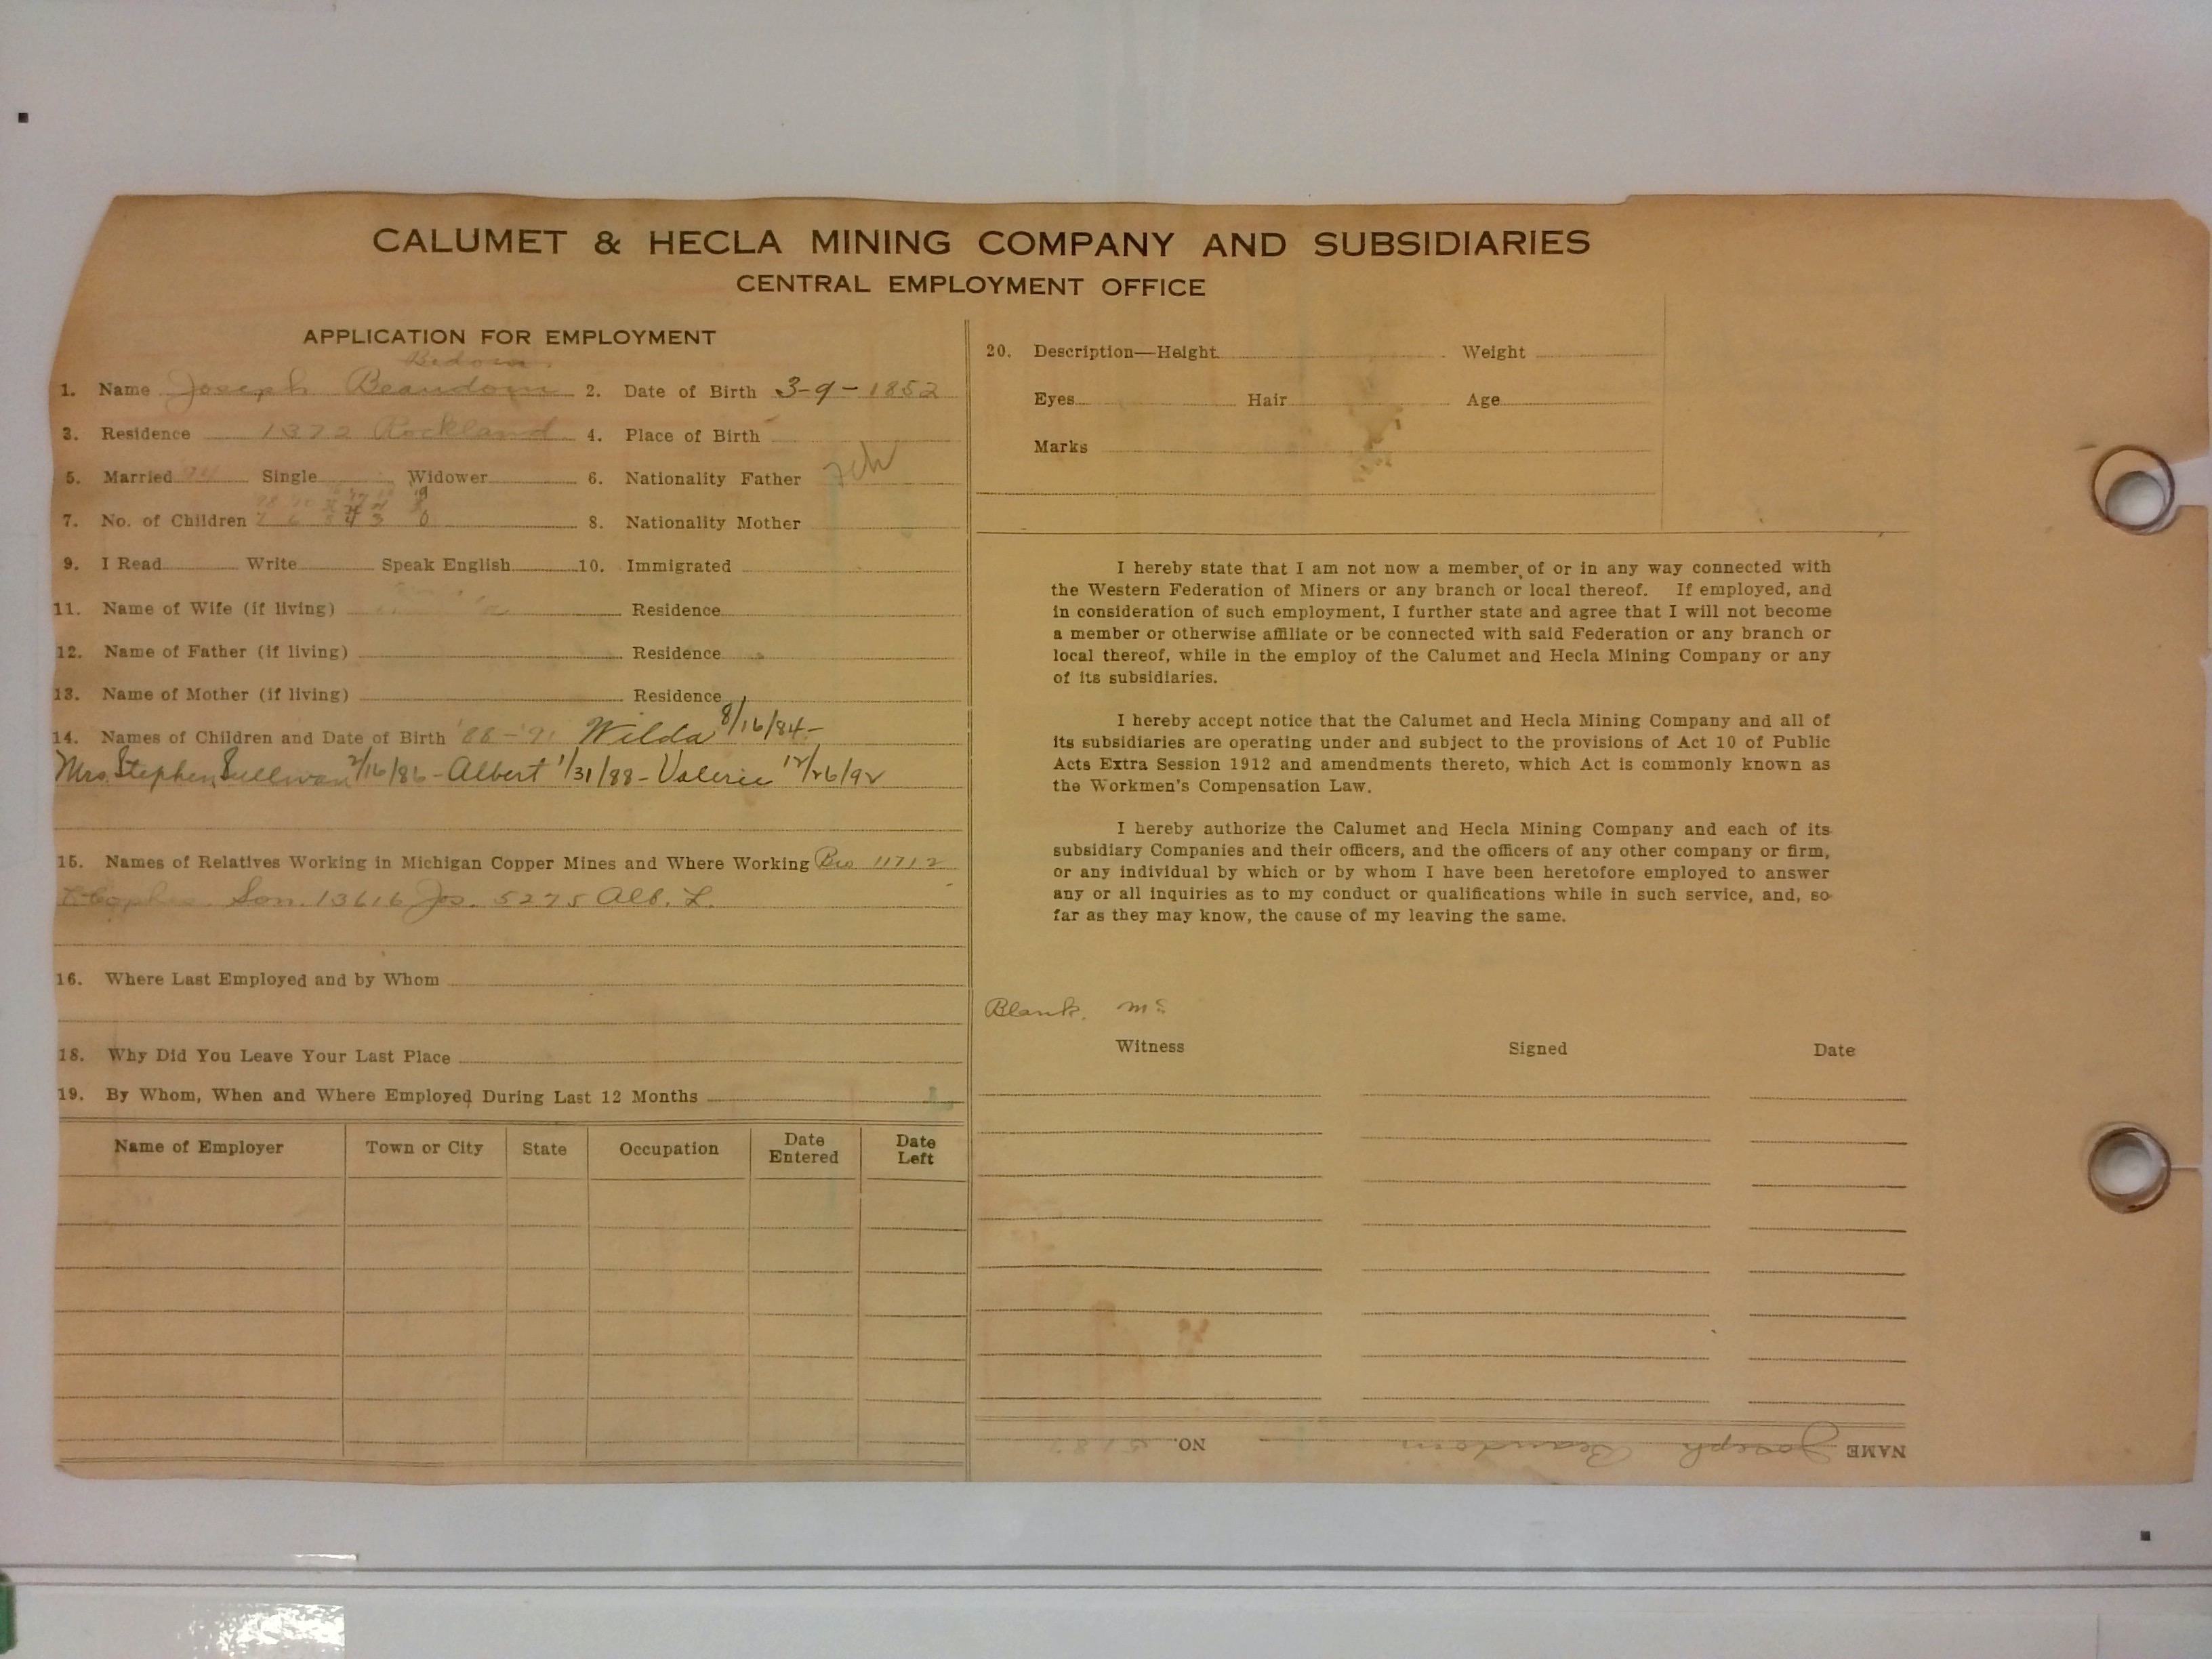 CALUMET & HECLA MINING COMPANY AND SUBSIDIARIES
CENTRAL EMPLOYMENT OFFICE
APPLICATION FOR EMPLOYMENT
Bedoin.
1. Name Joseph Beaudoin 2. Date of Birth 3-9-1852
3. Residence 1372 Rockland 4. Place of Birth
5. Married Single Widower 6. Nationality Father Fch
7. No. of Children 7 6 4 3 0 8. Nationality Mother
9. I Read Write Speak English 10. Immigrated
11. Name of Wife (if living) Residence
12. Name of Father (if living) Residence
13. Name of Mother (if living) Residence
14. Names of Children and Date of Birth '88-'91 Wilda 8/16/84-
Mrs. Stephen Sullivan 2/16/86 - Albert 1/31/88 - Valerie 12/26/92
15. Names of Relatives Working in Michigan Copper Mines and Where Working Bro 11712
Son. 13616 Jos. 5275 Alb. L.
16. Where Last Employed and by Whom
18. Why Did You Leave Your Last Place
19. By Whom, When and Where Employed During Last 12 Months
Name of Employer Town or City State Occupation Date Entered Date Left
20. Description—Height Weight
Eyes Hair Age
Marks
I hereby state that I am not now a member of or in any way connected with
the Western Federation of Miners or any branch or local thereof. If employed, and
in consideration of such employment, I further state and agree that I will not become
a member or otherwise affiliate or be connected with said Federation or any branch or
local thereof, while in the employ of the Calumet and Hecla Mining Company or any
of its subsidiaries.
I hereby accept notice that the Calumet and Hecla Mining Company and all of
its subsidiaries are operating under and subject to the provisions of Act 10 of Public
Acts Extra Session 1912 and amendments thereto, which Act is commonly known as
the Workmen's Compensation Law.
I hereby authorize the Calumet and Hecla Mining Company and each of its
subsidiary Companies and their officers, and the officers of any other company or firm,
or any individual by which or by whom I have been heretofore employed to answer
any or all inquiries as to my conduct or qualifications while in such service, and, so
far as they may know, the cause of my leaving the same.
Blank. Mc
Witness Signed Date
NAME Joseph Beaudoin NO.